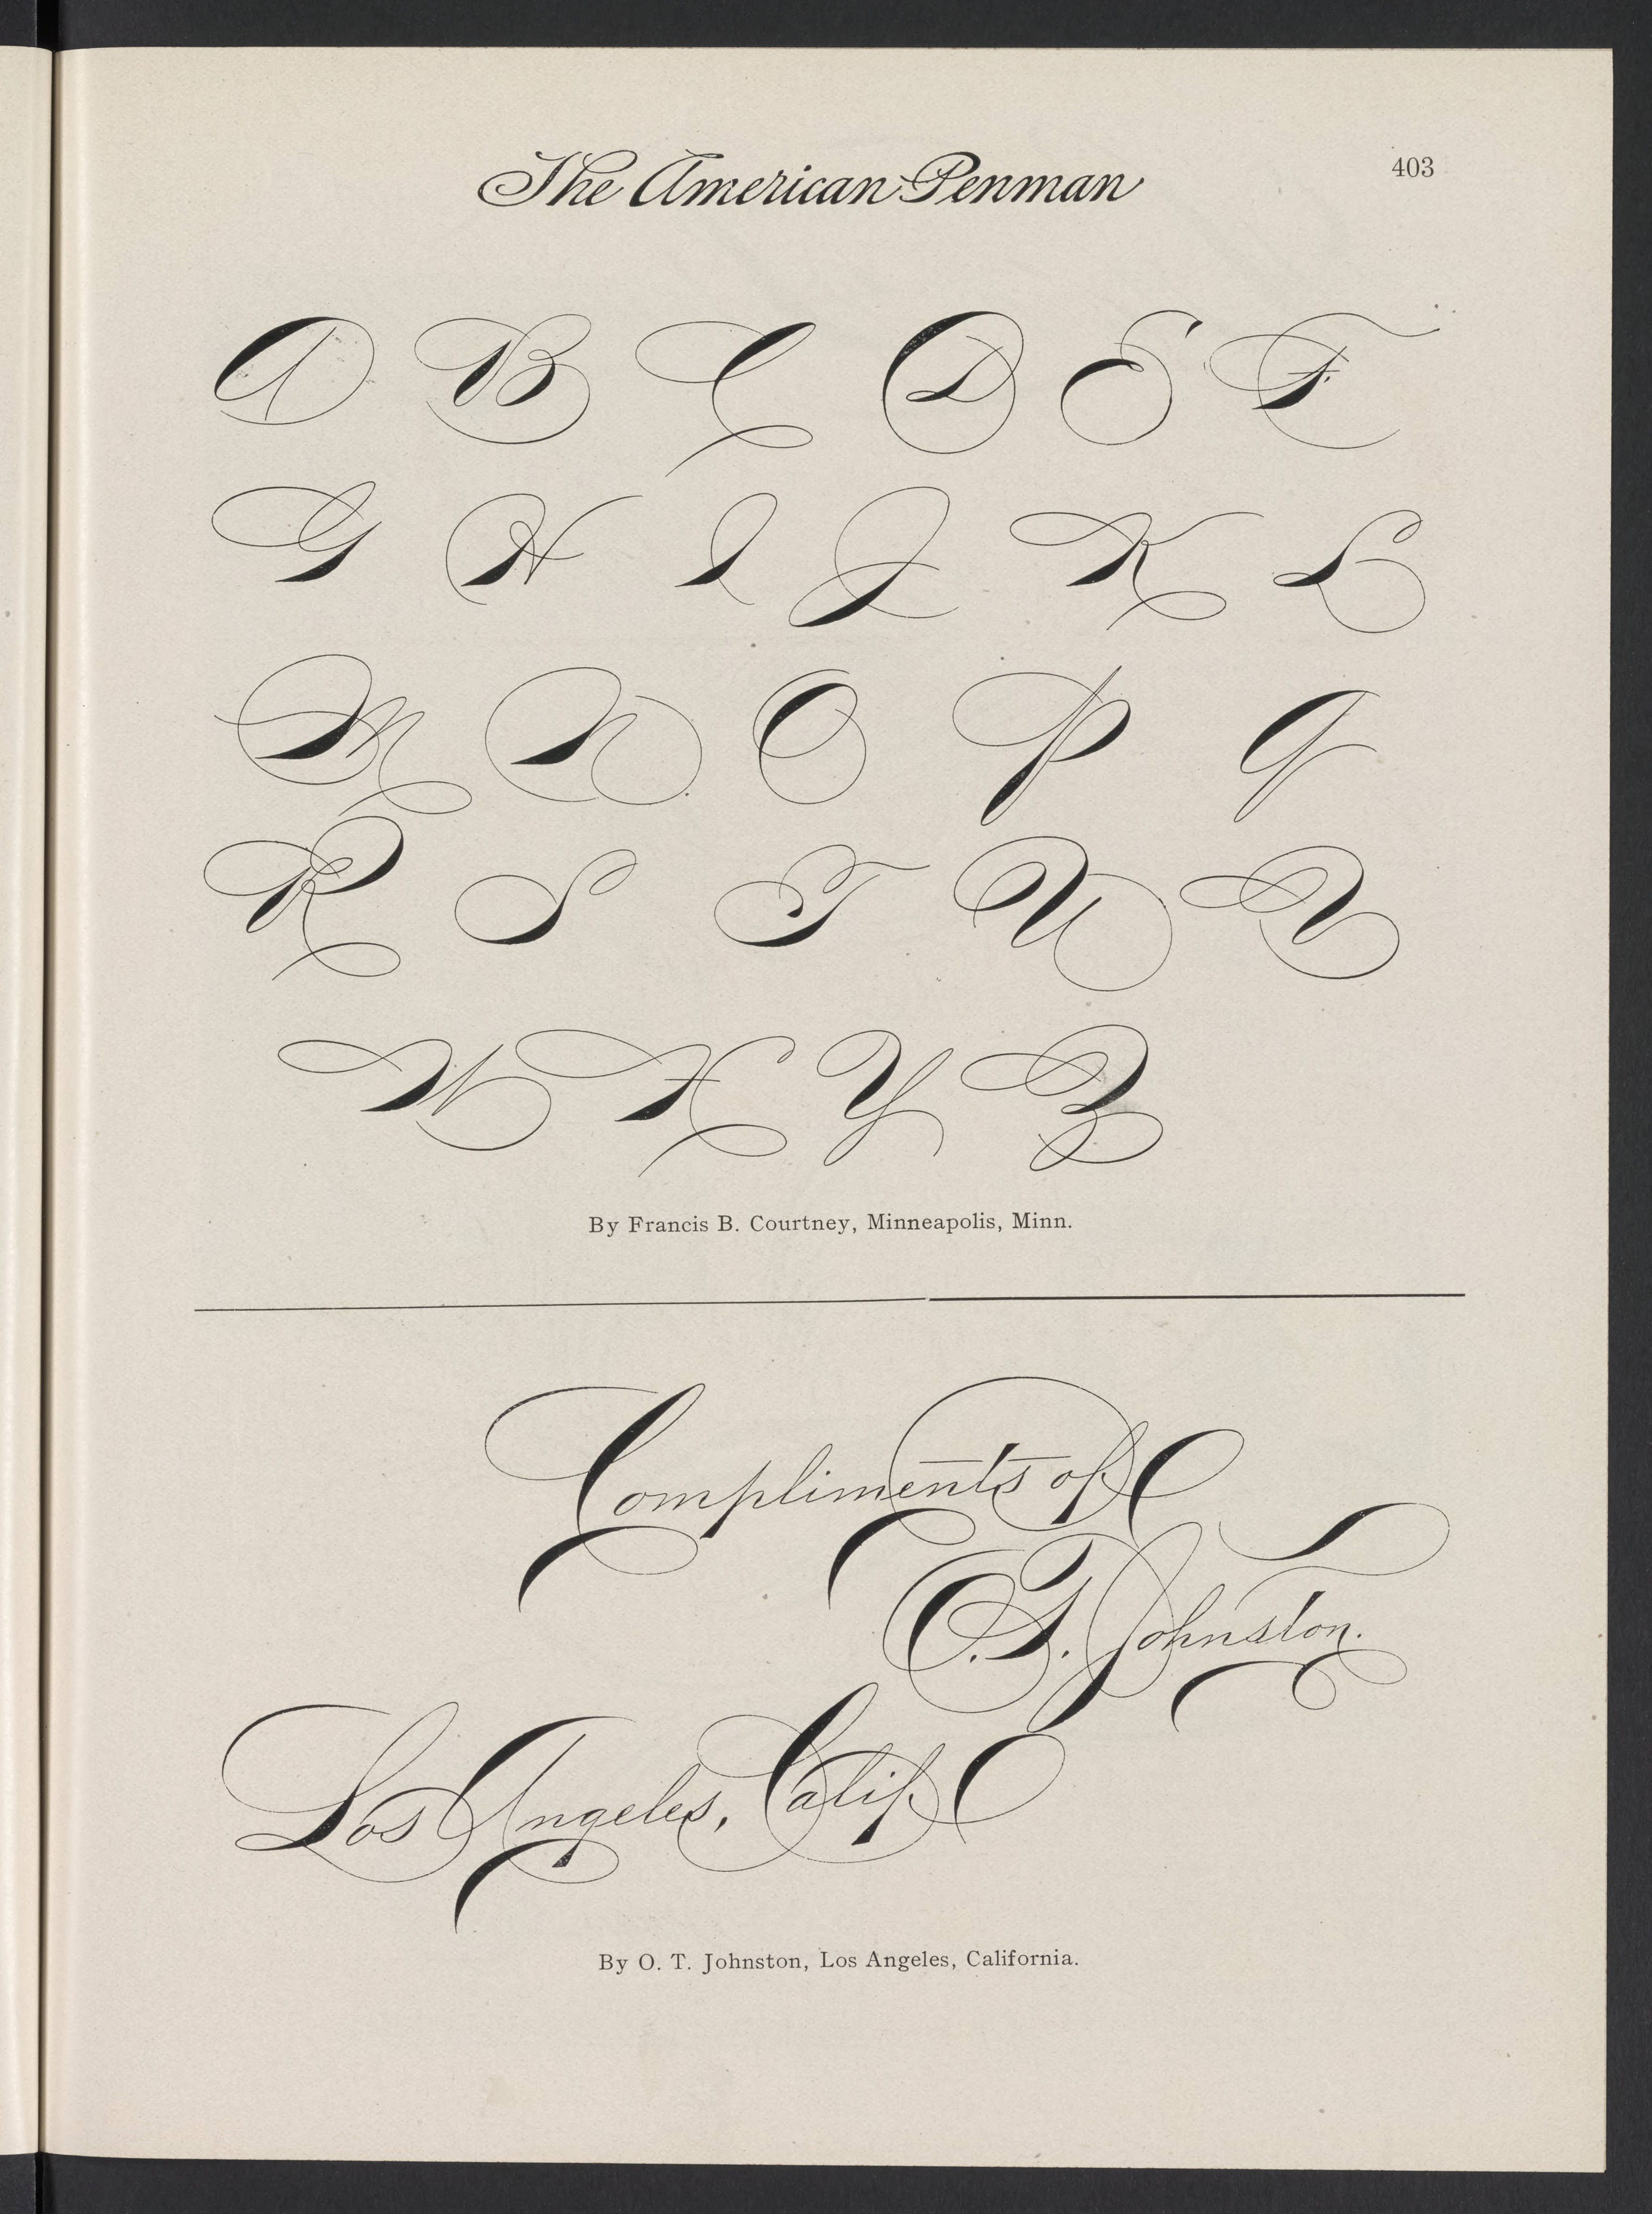 The American Penman
403
A B C D E F
G H I J K L
M N O P Q
R S T U V
W X Y Z
By Francis B. Courtney, Minneapolis, Minn.
Compliments of
O. T. Johnston.
Los Angeles, Calif.
By O. T. Johnston, Los Angeles, California.